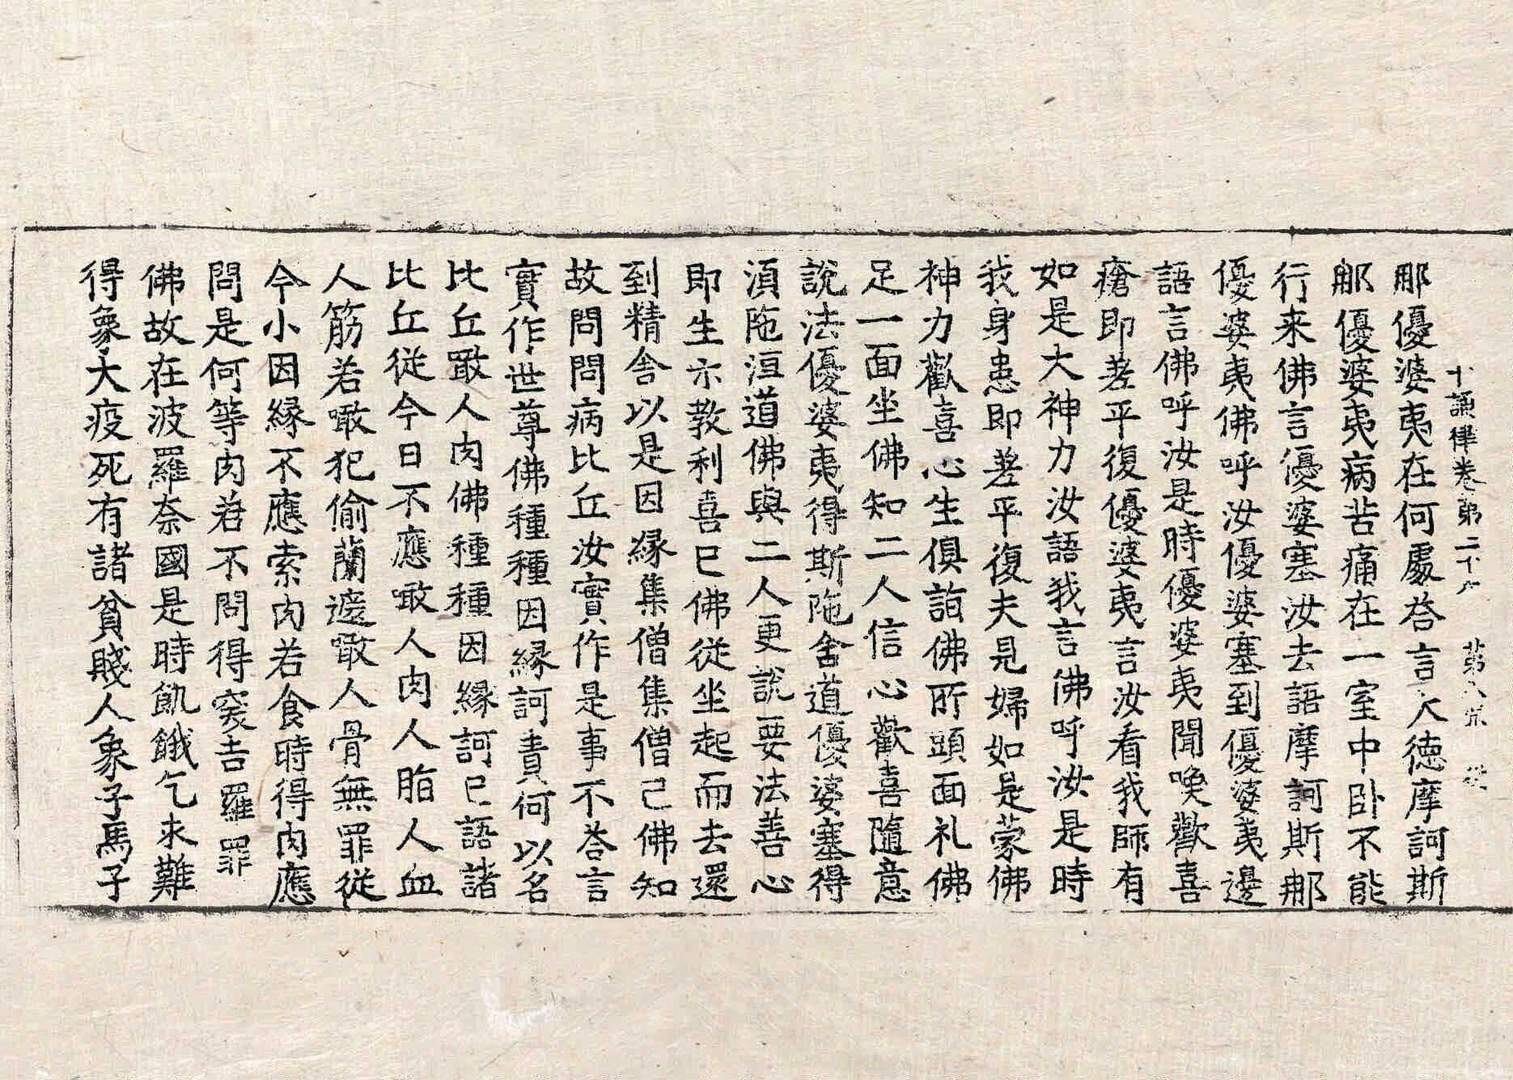 十誦律卷第二十六 第八 張
那優婆夷在何處荅言大德摩訶斯
那優婆夷病苦痛在一室中卧不能
行来佛言優婆塞汝去語摩訶斯那
優婆夷佛呼汝優婆塞到優婆夷邊
語言佛呼汝是時優婆夷聞喚歡喜
瘡即差平復優婆夷言汝看我師有
如是大神力汝語我言佛呼汝是時
我身患即差平復夫見婦如是蒙佛
神力歡喜心生俱詣佛所頭面礼佛
足一面坐佛知二人信心歡喜隨意
說法優婆夷得斯陁含道優婆塞得
湏陁洹道佛與二人更說要法善心
即生示教利喜已佛從坐起而去還
到精舍以是因縁集僧集僧已佛知
故問問病比丘汝實作是事不荅言
實作世尊佛種種因縁訶責何以名
比丘噉人肉佛種種因縁訶已語諸
比丘從今日不應噉人肉人脂人血
人筋若噉犯偷蘭遮噉人骨無罪從
今小因縁不應索肉若食時得肉應
問是何等肉若不問得突吉羅罪
佛故在波羅奈國是時飢餓乞求難
得象大疫死有諸貧賤人象子馬子